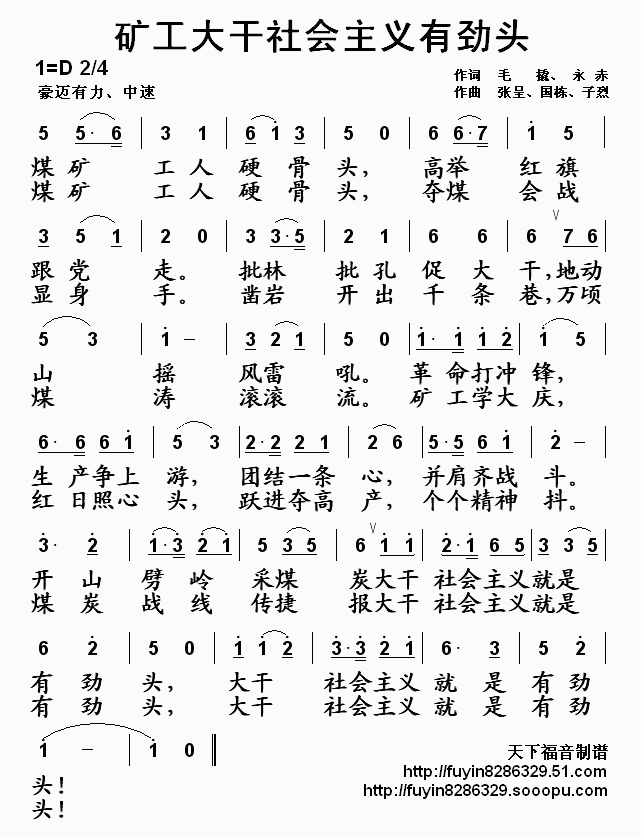 矿工大干社会主义有劲头
1=D 2/4
作词 毛 撬、永赤
豪迈有力、中速
作曲 张呈、国栋、子烈
5 5·6 | 3 1 | 6 i 3 | 5 0 | 6 6·7 | i 5 |
煤矿 工人 硬骨 头， 高举 红旗
煤矿 工人 硬骨 头， 夺煤 会战
3 5 1 | 2 0 | 3 3·5 | 2 1 | 6 6 | 6 7 6 |
跟党 走。 批林 批孔 促大 干,地动
显身 手。 凿岩 开出 千条 巷,万顷
5 3 | i - | 3 2 1 | 5 0 | i·i i 2 | i 5 |
山 摇 风雷 吼。 革命打冲 锋,
煤 涛 滚滚 流。 矿工学大 庆,
6· 6 6 i | 5 3 | 2·2 2 1 | 2 6 | 5·5 6 i | 2 - |
生产争上 游, 团结一条 心, 并肩齐战 斗。
红日照心 头, 跃进夺高 产, 个个精神 抖。
3· 2 | i·3 2 i | 5 3 5 | 6 i i | 2·i 6 5 | 3 3 5 |
开山 劈岭 采煤 炭大干 社会主义就是
煤炭 战线 传捷 报大干 社会主义就是
6 2 | 5 0 | i i 2 | 3·3 2 i | 6· 3 | 5 2 |
有劲 头, 大干 社会主义 就是 有劲
有劲 头, 大干 社会主义 就是 有劲
i - | i 0 ‖
天下福音制谱
http://fuyin8286329.51.com
头!
http://fuyin8286329.sooopu.com
头!